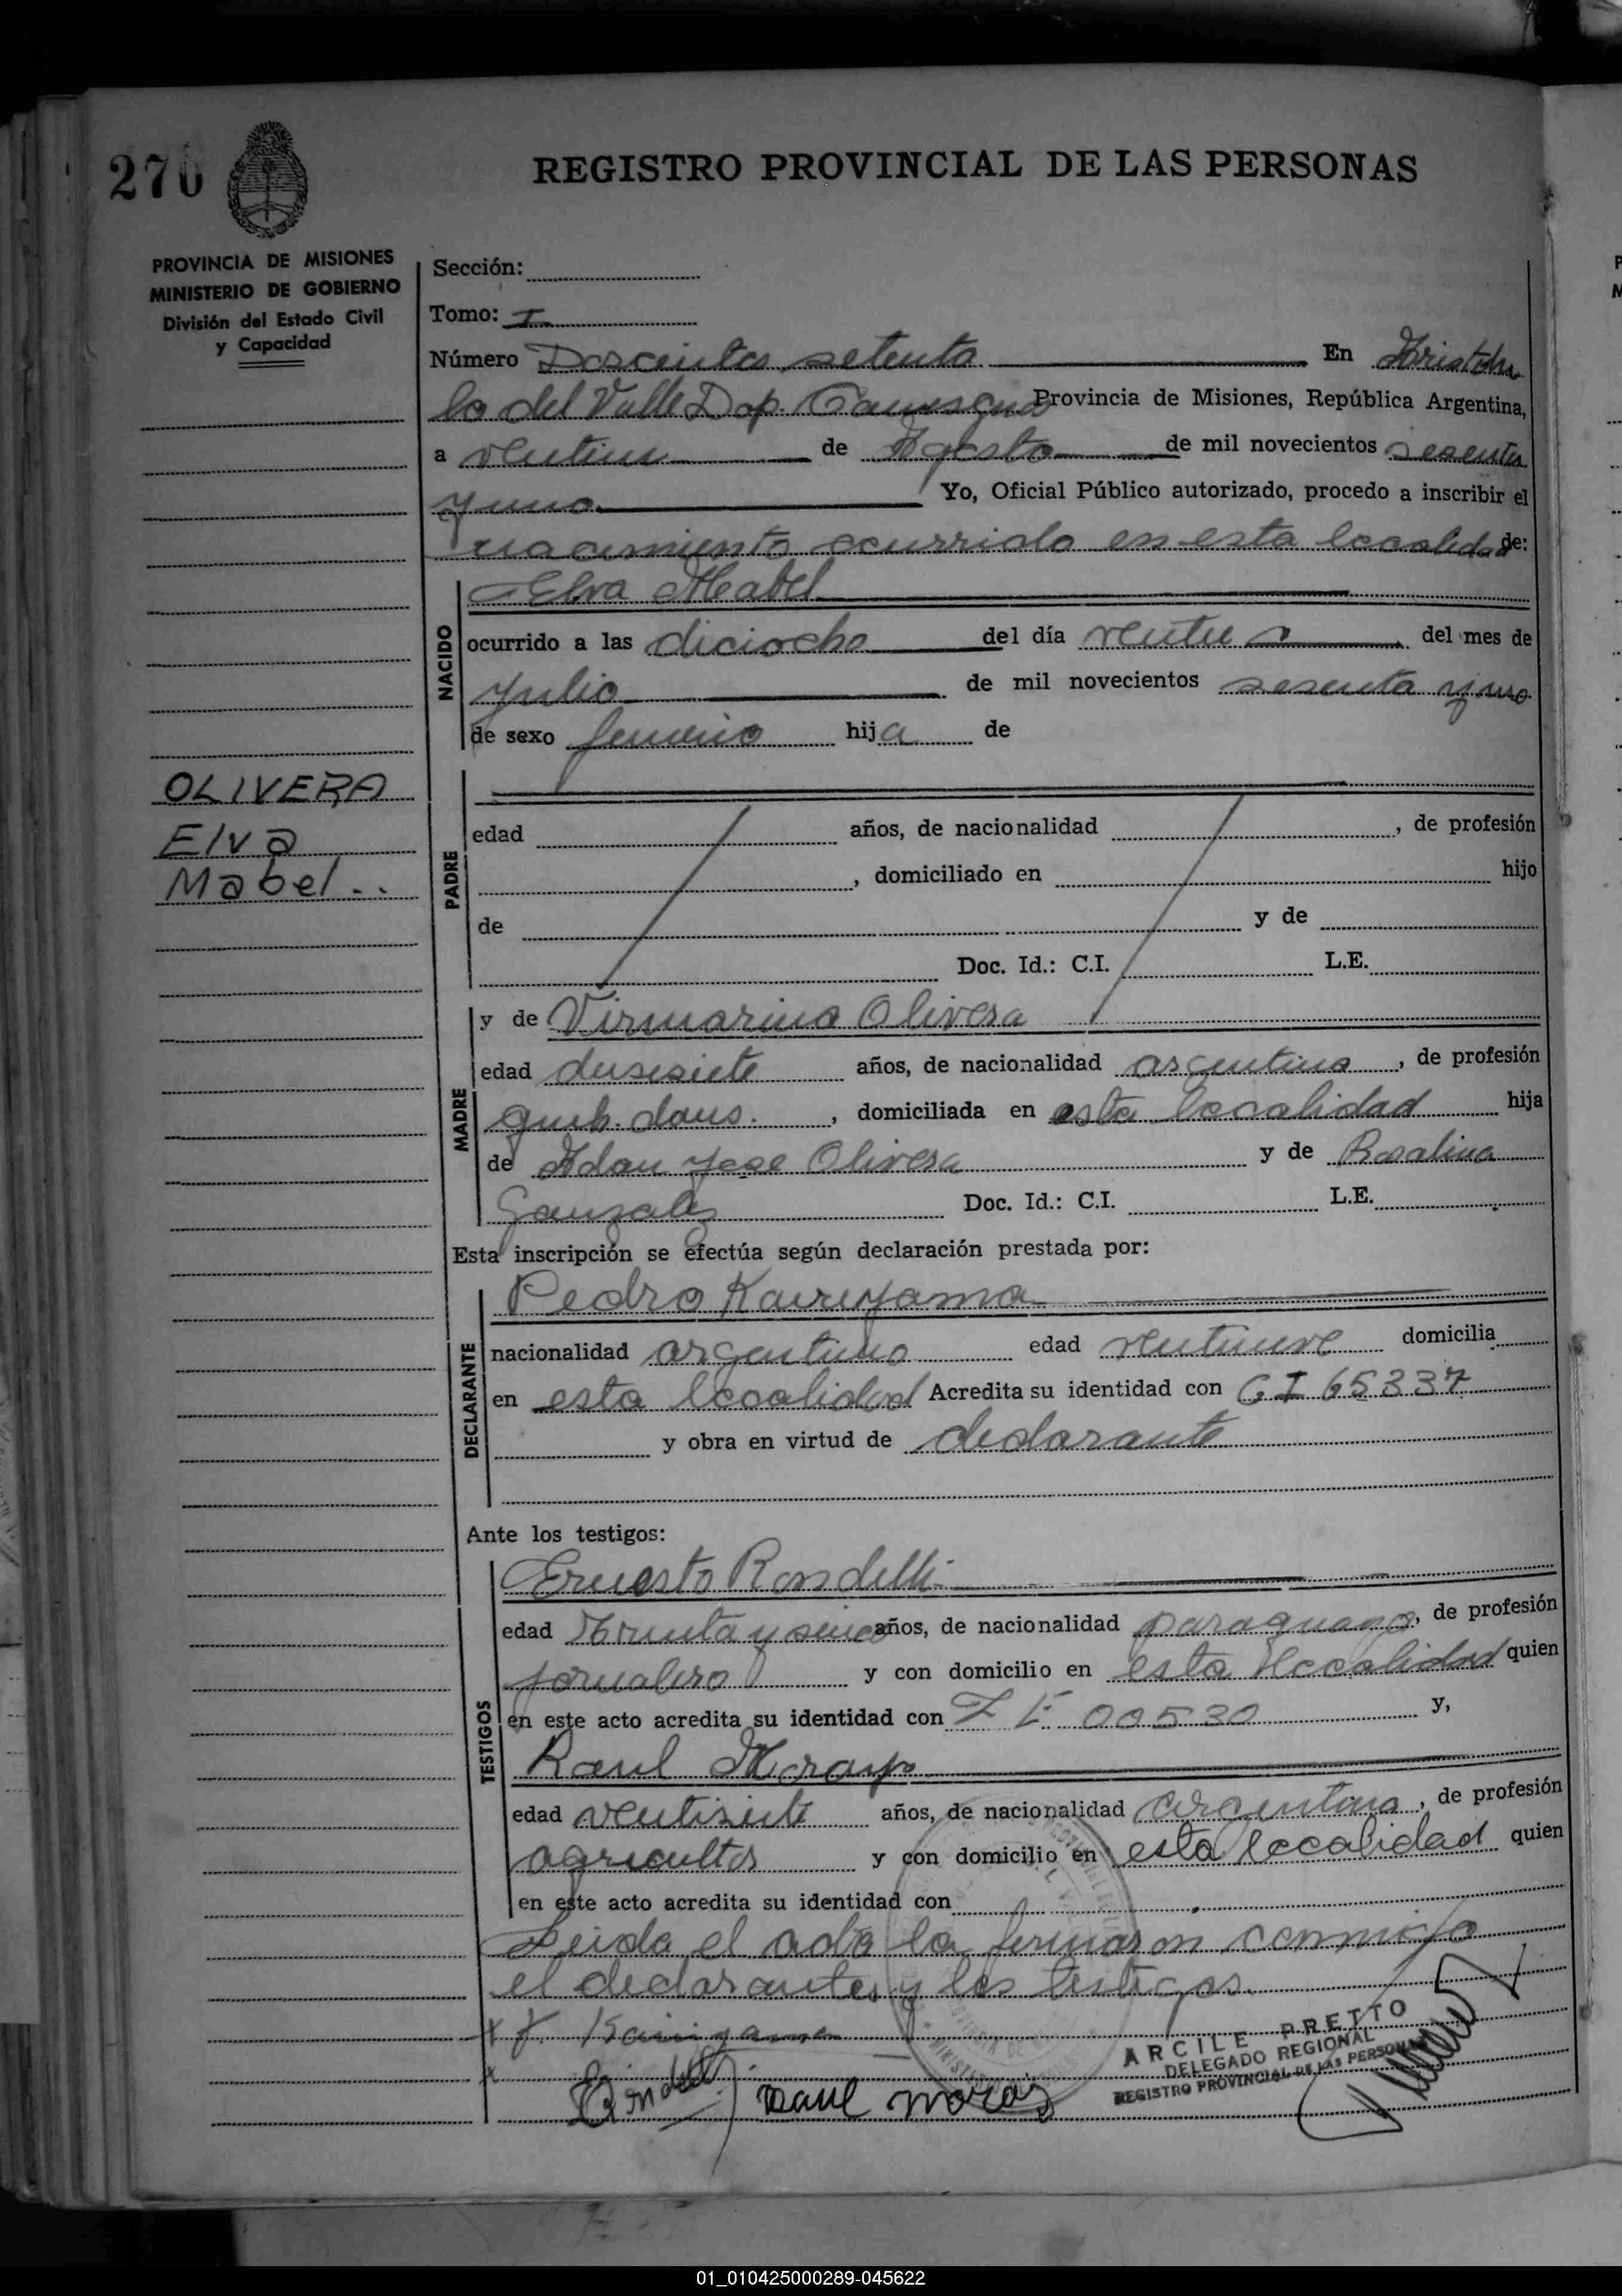 270
REGISTRO PROVINCIAL DE LAS PERSONAS
PROVINCIA DE MISIONES
MINISTERIO DE GOBIERNO
División del Estado Civil
y Capacidad
Sección:
Tomo: I
Número Doscientos setenta En Aristobu
lo del Valle Dep. Provincia de Misiones, República Argentina,
a de Agosto de mil novecientos sesenta
y uno Yo, Oficial Público autorizado, procedo a inscribir el
nacimiento ocurrido en esta localidad de:
NACIDO
Elva Mabel
ocurrido a las diciocho del día del mes de
Julio de mil novecientos sesenta y uno
de sexo femenino hija de
OLIVERA
Elva
Mabel..
PADRE
edad años, de nacionalidad , de profesión
, domiciliado en hijo
de y de
Doc. Id.: C.I. L.E.
MADRE
y de Virmarina Olivera
edad años, de nacionalidad argentina, de profesión
, domiciliada en esta localidad hija
de Adan Jose Olivera y de Rosalina
Gonzalez Doc. Id.: C.I. L.E.
Esta inscripción se efectúa según declaración prestada por:
DECLARANTE
Pedro
nacionalidad argentino edad domicilia
en esta localidad Acredita su identidad con C I 65337
y obra en virtud de declarante
Ante los testigos:
TESTIGOS
Ernesto Rondelli
edad años, de nacionalidad paraguayo, de profesión
jornalero y con domicilio en esta localidad quien
en este acto acredita su identidad con 00530 y,
Raul
edad ventisiete años, de nacionalidad argentino, de profesión
agricultor y con domicilio en esta localidad quien
en este acto acredita su identidad con
Leida el acta la firmaron conmigo
el declarante y los testigos.
Raul
ARCILE PRETTO
DELEGADO REGIONAL
REGISTRO PROVINCIAL DE LAS PERSONAS
01_010425000289-045622